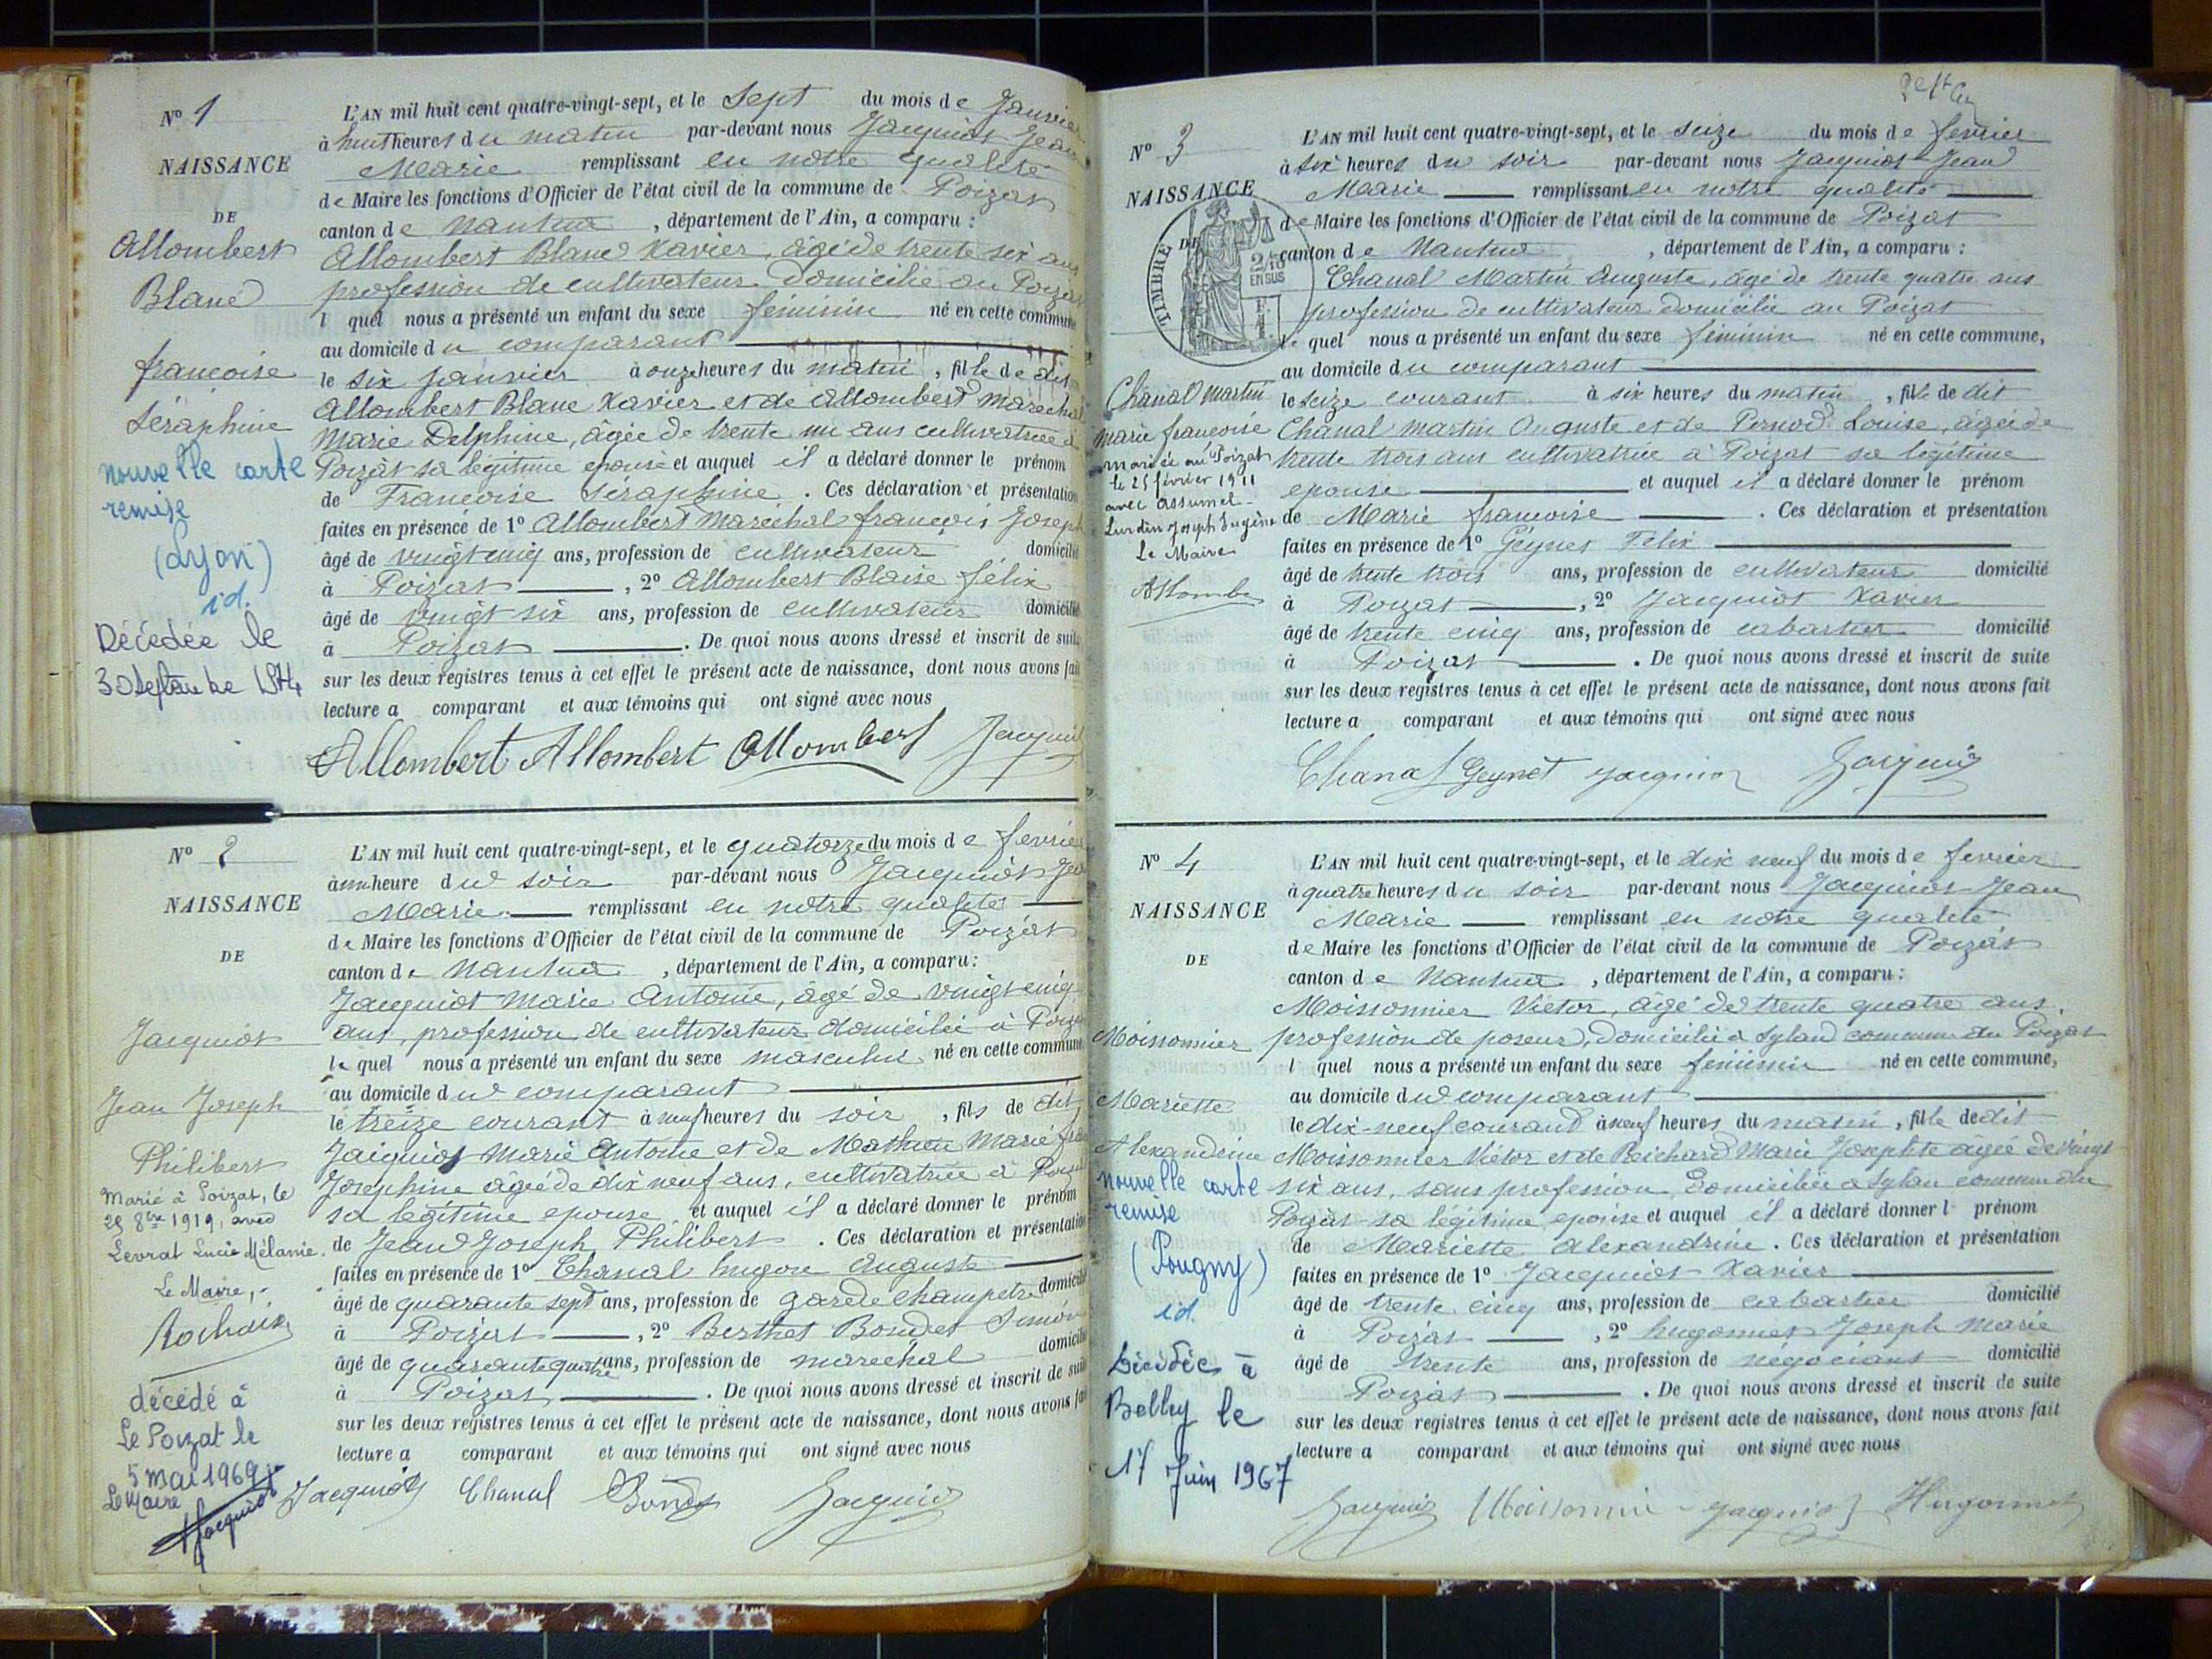 Nº 1
NAISSANCE
DE
Allombert
Blanc
françoise
Séraphine
nouvelle carte
remise
(Lyon)
id.
Décédée le
L'AN mil huit cent quatre-vingt-sept, et le Sept du mois de Janvier
à huit heures du matin par-devant nous Jacquiot Jean
Marie remplissant en notre qualité
de Maire les fonctions d'Officier de l'état civil de la commune de Poizat
canton de Nantua, département de l'Ain, a comparu :
Allombert Blanc Xavier, âgé de trente six ans
profession de cultivateur domicilié au Poizat
lquel nous a présenté un enfant du sexe féminin né en cette commune
au domicile du comparant
le six janvier à onze heures du matin, fille de dit
Allombert Blanc Xavier et de Allombert Maréchal
Marie Delphine, âgée de trente un ans cultivatrice à
Poizat sa légitime épouse et auquel il a déclaré donner le prénom
de Françoise Séraphine. Ces déclaration et présentation
faites en présence de 1º Allombert Maréchal françois Joseph
âgé de vingt cinq ans, profession de cultivateur domicilié
à Poizat, 2º Allombert Blaise félix
âgé de vingt six ans, profession de cultivateur domicilié
à Poizat. De quoi nous avons dressé et inscrit de suite
sur les deux registres tenus à cet effet le présent acte de naissance, dont nous avons fait
lecture a comparant et aux témoins qui ont signé avec nous
Allombert Allombert Allombert Jacquiot
Nº 2
NAISSANCE
DE
Jacquiot
Jean Joseph
Philibert
Marié à Poizat, le
25 8bre 1919, avec
Levrat Lucie Mélanie.
Le Maire,
décédé à
Le Poizat le
5 mai 1969
Le Maire
Jacquiot
L'AN mil huit cent quatre-vingt-sept, et le quatorze du mois de fevrier
à une heure du soir par-devant nous Jacquiot Jean
Marie remplissant en notre qualité
de Maire les fonctions d'Officier de l'état civil de la commune de Poizat
canton de Nantua, département de l'Ain, a comparu :
Jacquiot Marie Antoine, âgé de vingt cinq
ans, profession de cultivateur domicilié à Poizat
lequel nous a présenté un enfant du sexe masculin né en cette commune
au domicile du comparant
le treize courant à neuf heures du soir, fils de dit
Jacquiot Marie Antoine et de Mathieu Marie
Josephine âgée de dix neuf ans, cultivatrice à Poizat
sa légitime epouse et auquel il a déclaré donner le prénom
de Jean Joseph Philibert. Ces déclaration et présentation
faites en présence de 1º Chanal hugon Auguste
âgé de quarante sept ans, profession de garde champetre domicilié
à Poizat, 2º Berthet Bondet Simon
âgé de quarante quatre ans, profession de marechal domicilié
à Poizat. De quoi nous avons dressé et inscrit de suite
sur les deux registres tenus à cet effet le présent acte de naissance, dont nous avons fait
lecture a comparant et aux témoins qui ont signé avec nous
Jacquiot Chanal Bondet Jacquiot
Nº 3
NAISSANCE
DE
TIMBRE
2/10
EN SUS
Chanal Martin
Marie françoise
mariée au Poizat
le 25 février 1911
avec Assumel-
Lurdin Joseph Eugène
Le Maire
L'AN mil huit cent quatre-vingt-sept, et le seize du mois de fevrier
à six heures du soir par-devant nous Jacquiot Jean
Marie remplissant en notre qualité
de Maire les fonctions d'Officier de l'état civil de la commune de Poizat
canton de Nantua, département de l'Ain, a comparu :
Chanal Martin Auguste, âgé de trente quatre ans
profession de cultivateur domicilié au Poizat
lequel nous a présenté un enfant du sexe féminin né en cette commune,
au domicile du comparant
le seize courant à six heures du matin, fille de dit
Chanal Martin Auguste et de Pernod Louise, âgée de
trente trois ans cultivatrice à Poizat sa légitime
epouse et auquel il a déclaré donner le prénom
de Marie françoise. Ces déclaration et présentation
faites en présence de 1º Geynet Félix
âgé de trente trois ans, profession de cultivateur domicilié
à Poizat, 2º Jacquiot Xavier
âgé de trente cinq ans, profession de cabartier domicilié
à Poizat. De quoi nous avons dressé et inscrit de suite
sur les deux registres tenus à cet effet le présent acte de naissance, dont nous avons fait
lecture a comparant et aux témoins qui ont signé avec nous
Chanal Geynet Jacquiot Jacquiot
Nº 4
NAISSANCE
DE
Moissonnier
Mariette
Alexandrine
nouvelle carte
remise
(Pougny)
id.
Décédée à
Belley le
17 Juin 1967
L'AN mil huit cent quatre-vingt-sept, et le dix neuf du mois de fevrier
à quatre heures du soir par-devant nous Jacquiot Jean
Marie remplissant en notre qualité
de Maire les fonctions d'Officier de l'état civil de la commune de Poizat
canton de Nantua, département de l'Ain, a comparu :
Moissonnier Victor, âgé de trente quatre ans
profession de poseur, domicilié à Syland commune du Poizat
lquel nous a présenté un enfant du sexe féminin né en cette commune,
au domicile du comparant
le dix-neuf courant à neuf heures du matin, fille de dit
Moissonnier Victor et de Reichard Marie Josephte âgée de vingt
six ans, sans profession, Domiciliée à Sylan commune du
Poizat sa légitime epouse et auquel il a déclaré donner l prénom
de Mariette Alexandrine. Ces déclaration et présentation
faites en présence de 1º Jacquiot Xavier
âgé de trente cinq ans, profession de cabartier domicilié
à Poizat, 2º hugonnet Joseph Marie
âgé de trente ans, profession de négociant domicilié
à Poizat. De quoi nous avons dressé et inscrit de suite
sur les deux registres tenus à cet effet le présent acte de naissance, dont nous avons fait
lecture a comparant et aux témoins qui ont signé avec nous
Jacquiot Moissonnier Jacquiot Hugonnet